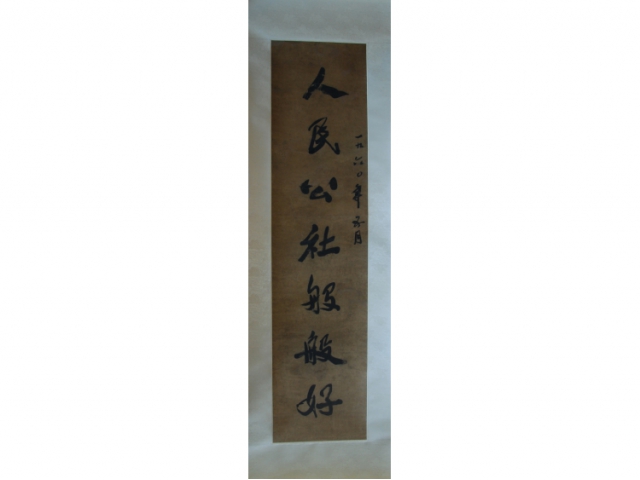 人民公社般般好
一九六〇年